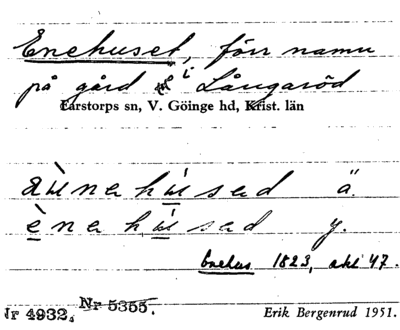 Enehuset, förr namn
på gård i Långaröd
Farstorps sn, V. Göinge hd, Krist. län
ä.
y.
Enehus 1823, akt 47.
Nr 4932. Nr 5355. Erik Bergenrud 1951.